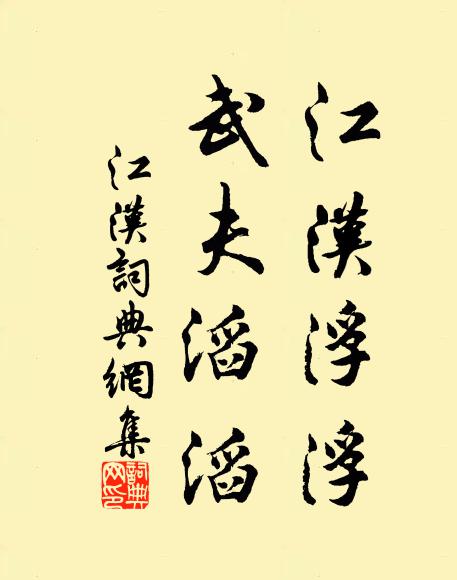 江漢浮浮
武夫滔滔
江漢詞典網集
詞典網印